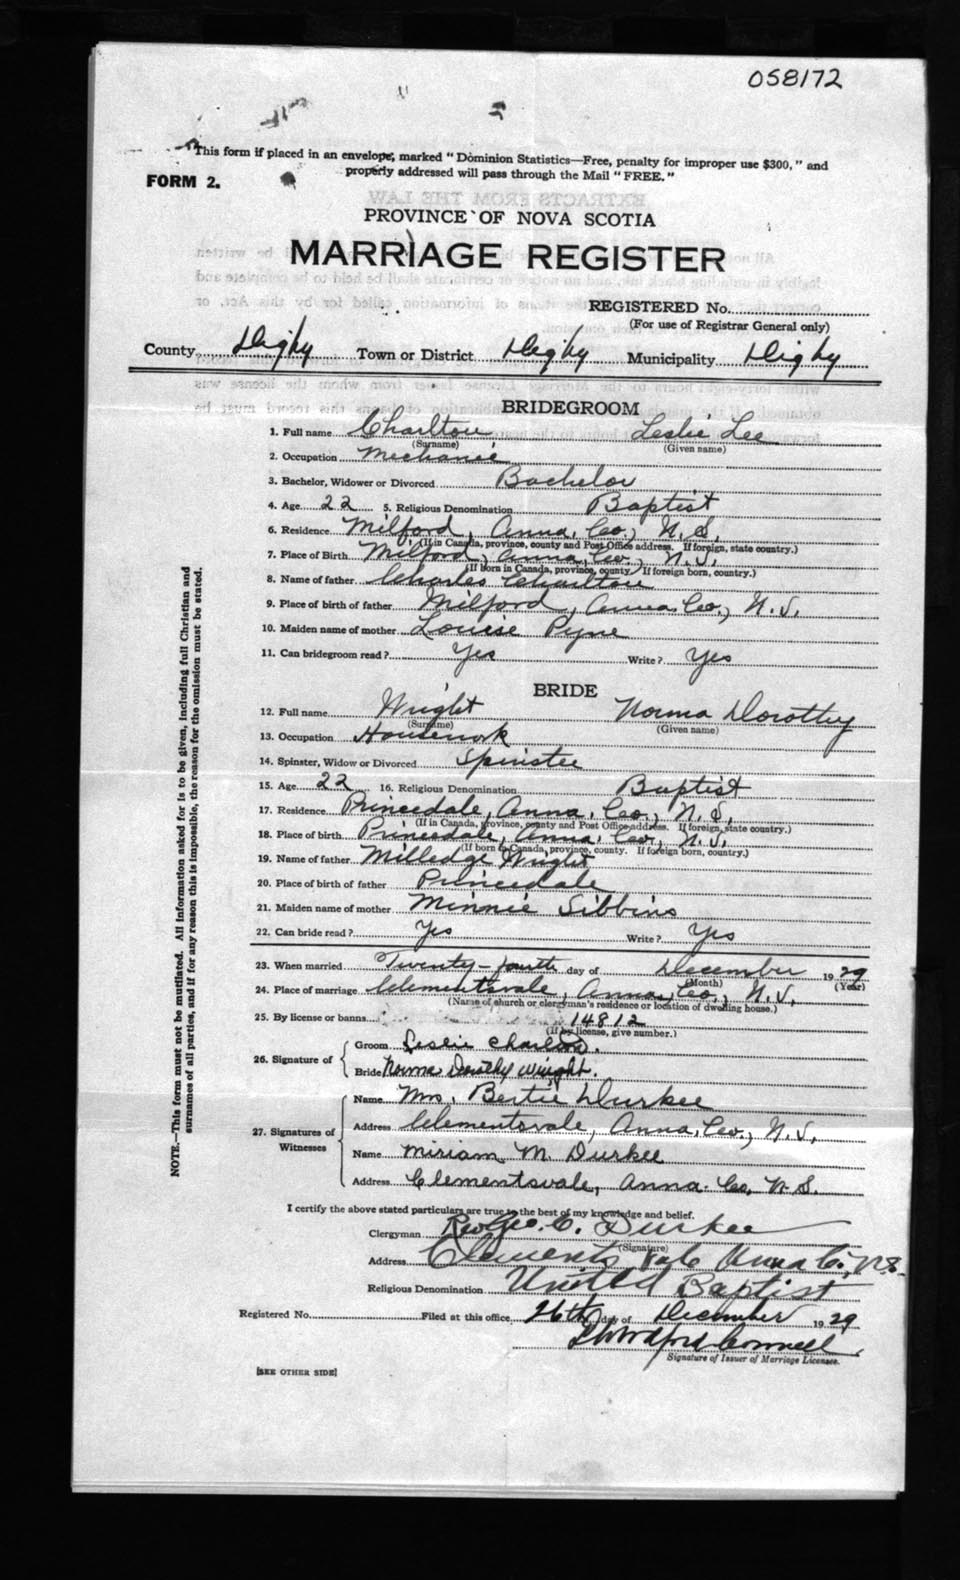 058172
This form if placed in an envelope, marked "Dominion Statistics—Free, penalty for improper use $300," and
properly addressed will pass through the Mail "FREE."
FORM 2.
PROVINCE OF NOVA SCOTIA
MARRIAGE REGISTER
REGISTERED No.
(For use of Registrar General only)
County Digby Town or District Digby Municipality Digby
BRIDEGROOM
1. Full name Charlton Leslie Lee
(Surname) (Given name)
2. Occupation Mechanic
3. Bachelor, Widower or Divorced Bachelor
4. Age 22 5. Religious Denomination Baptist
6. Residence Milford, Anna. Co., N.S.
(If in Canada, province, county and Post Office address. If foreign, state country.)
7. Place of Birth Milford, Anna. Co., N.S.
(If born in Canada, province, county. If foreign born, country.)
8. Name of father Charles Charlton
9. Place of birth of father Milford, Anna. Co., N.S.
10. Maiden name of mother Louise Pyne
11. Can bridegroom read? Yes Write? Yes
BRIDE
12. Full name Wright Norma Dorothy
(Surname) (Given name)
13. Occupation Housework
14. Spinster, Widow or Divorced Spinster
15. Age 22 16. Religious Denomination Baptist
17. Residence Princedale, Anna. Co., N.S.
(If in Canada, province, county and Post Office address. If foreign, state country.)
18. Place of birth Princedale, Anna. Co., N.S.
(If born in Canada, province, county. If foreign born, country.)
19. Name of father Milledge Wright
20. Place of birth of father Princedale
21. Maiden name of mother Minnie Sibbins
22. Can bride read? Yes Write? Yes
23. When married Twenty-fourth day of December 1929
(Month) (Year)
24. Place of marriage Clementsvale, Anna. Co., N.S.
(Name of church or clergyman's residence or location of dwelling house.)
25. By license or banns 14812
(If by license, give number.)
26. Signature of Groom Leslie Charlton.
Bride Norma Dorothy Wright.
27. Signatures of Witnesses
Name Mrs. Bertie Durkee
Address Clementsvale, Anna. Co., N.S.
Name Miriam M. Durkee
Address Clementsvale, Anna. Co. N.S.
I certify the above stated particulars are true to the best of my knowledge and belief.
Clergyman Rev Geo. C. Durkee
(Signature)
Address Clements vale Anna Co. N.S.
Religious Denomination United Baptist
Registered No. Filed at this office 26th day of December 1929
Signature of Issuer of Marriage Licenses.
[SEE OTHER SIDE]
NOTE.—This form must not be mutilated. All information asked for is to be given, including full Christian and
surnames of all parties, and if for any reason this is impossible, the reason for the omission must be stated.